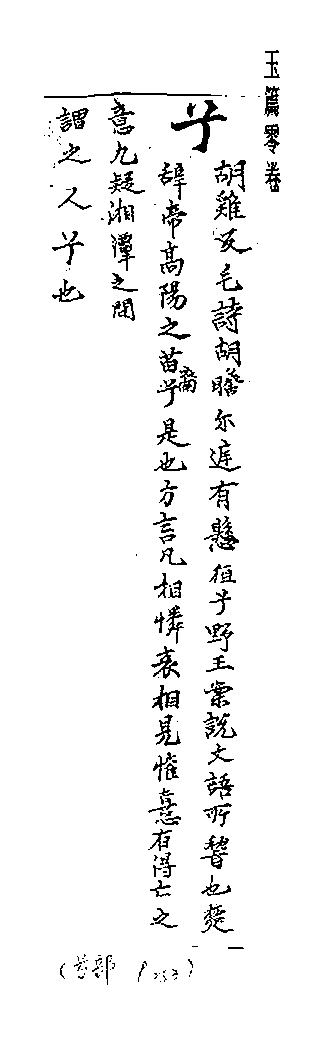 玉篇零卷
兮
胡雞反毛詩胡瞻尔庭有懸狟兮野王案說文語所替也楚
辞帝髙陽之苗裔兮是也方言凡相憐哀相見懽憙有得亡之
意九疑湘潭之間
謂之人兮也